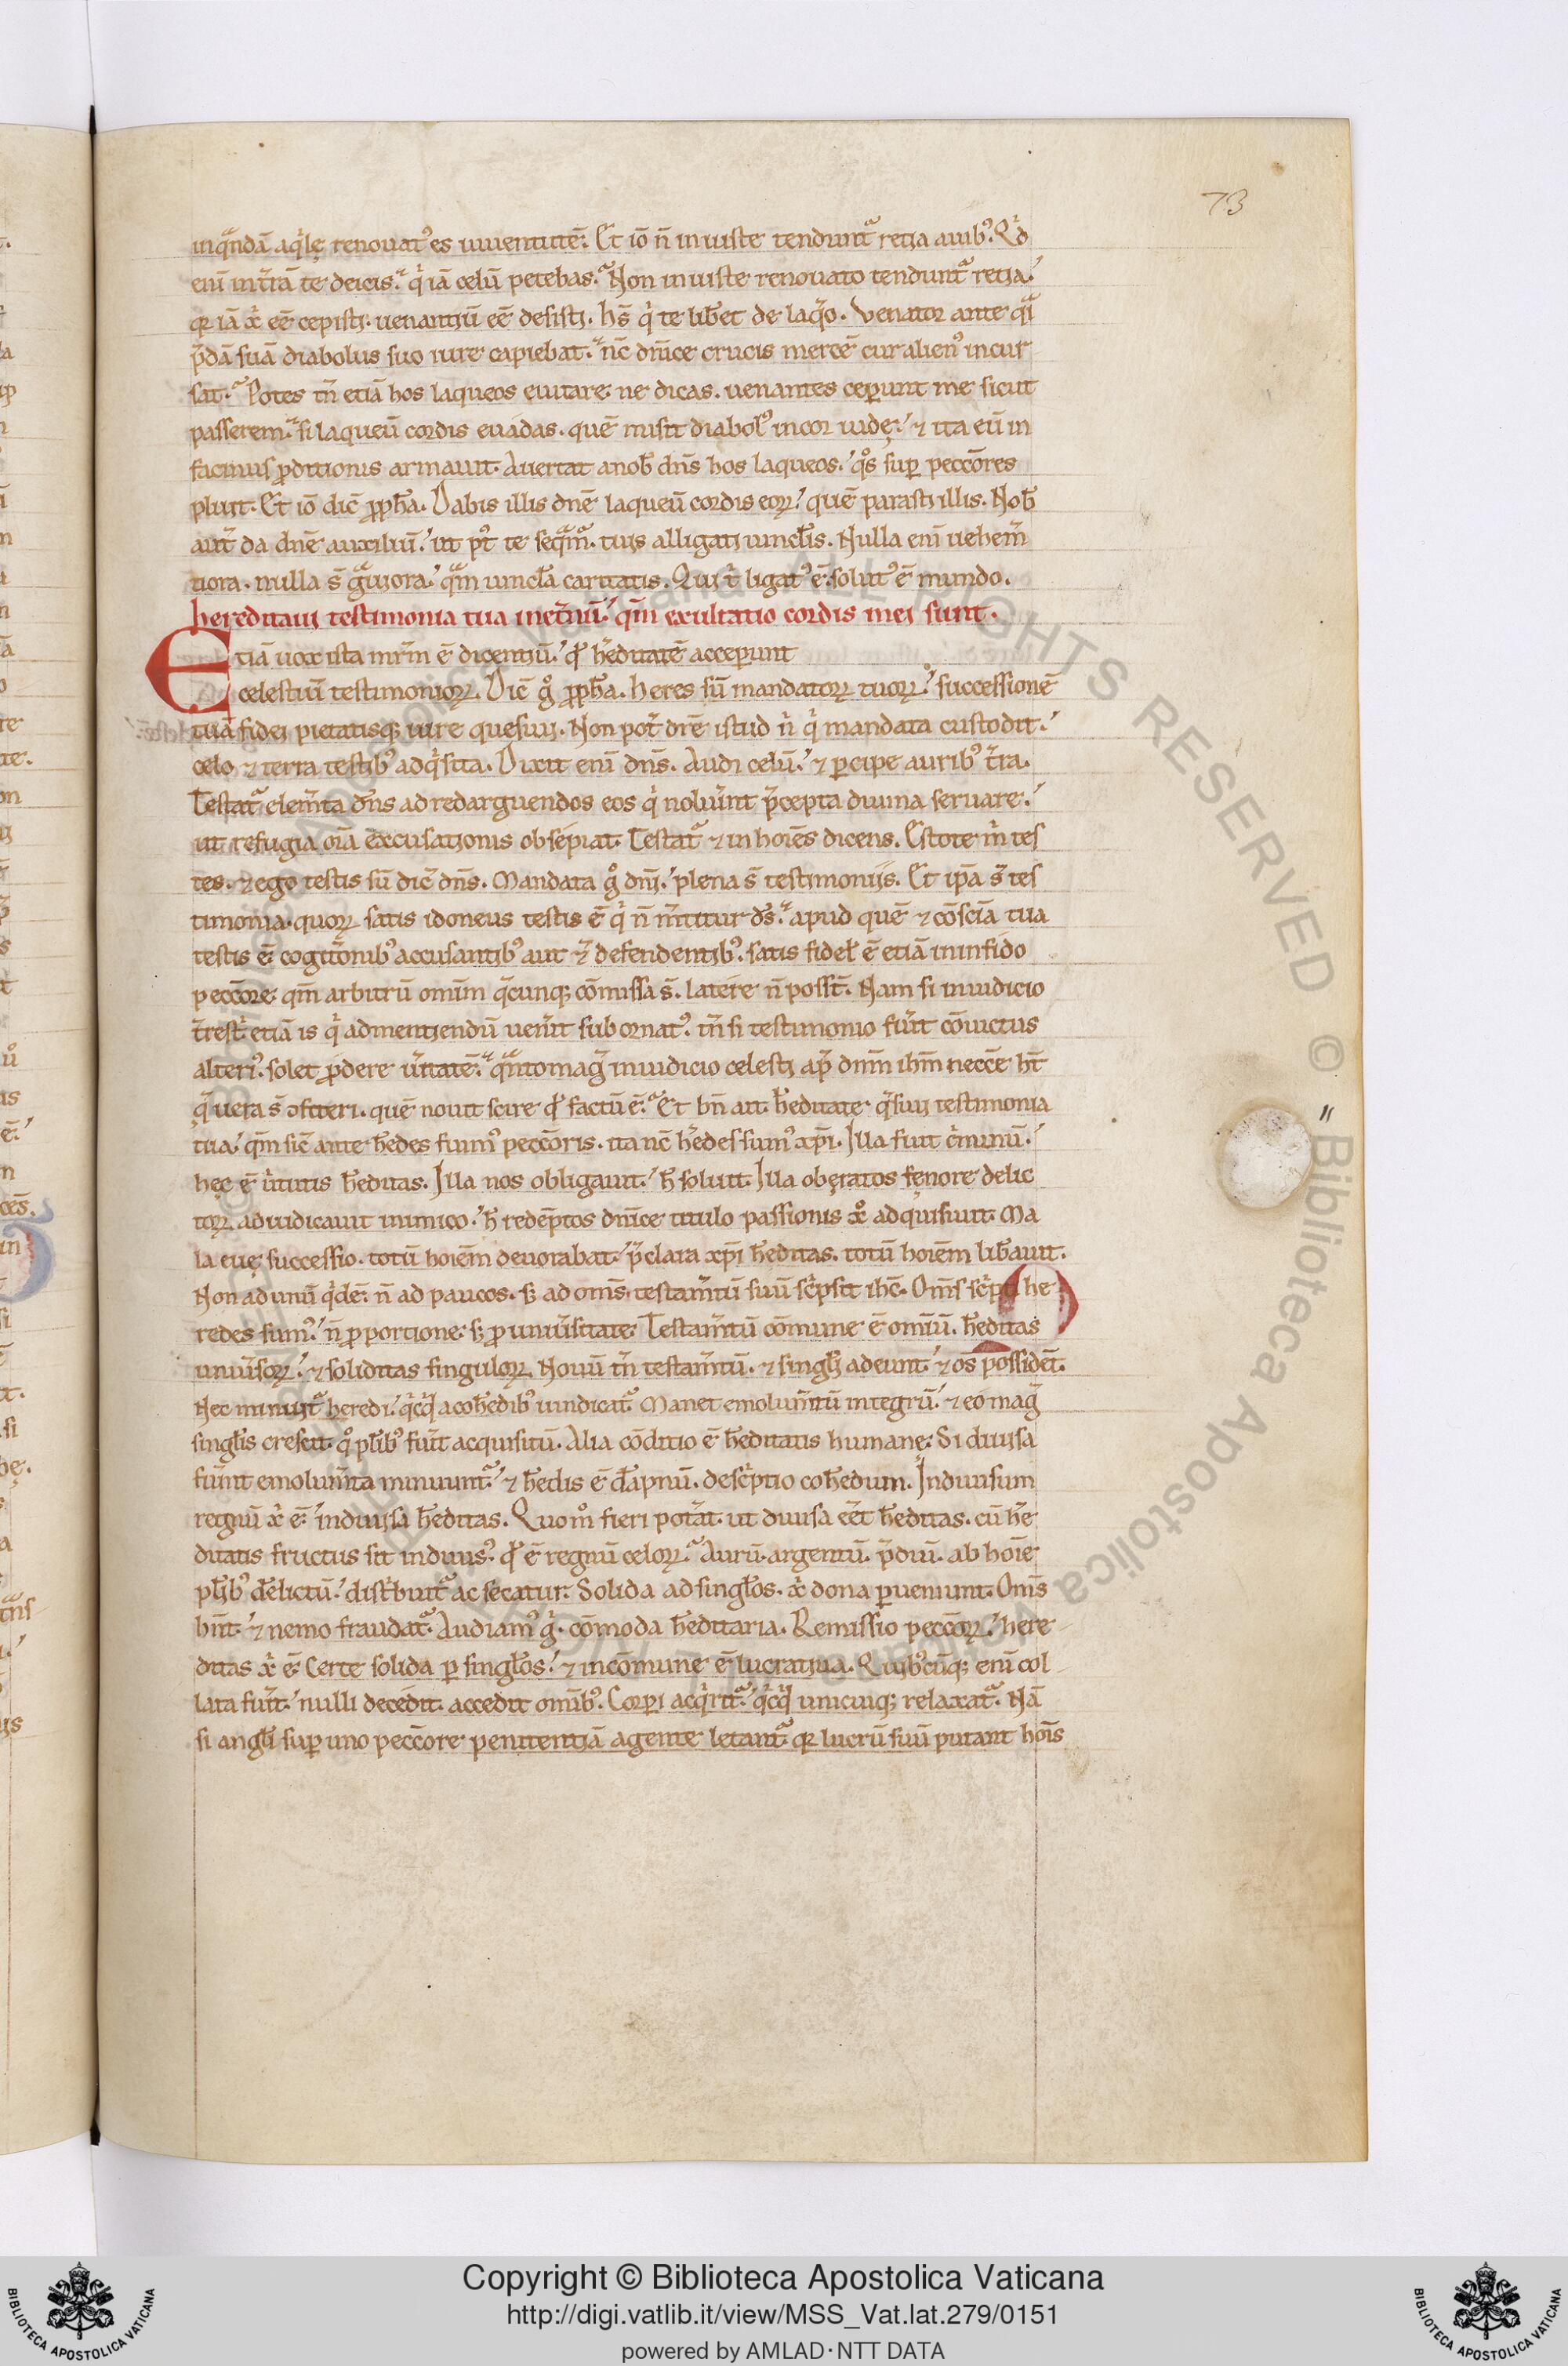 73
inq̃ndā aq̇lę renouatꝰ es iuuentutē. Et iō n̄ iniuste tendunt᷑ retia auibꝰ. Qd̕
eni᷑ int̃rā te deicis. q̇ iā celū petebas. Non iniuste renouato tendunt᷑ retia.
qr iā x̕ eē cepisti. uenantiū eē desisti. hs̄ q̇ te lib̃et de laq̃o. Venator ante q̃i
p̃dā suā diabolus suo iure capiebat. nc̄ dn̄ice crucis mercē cur alienꝰ incur
sat. Potes tn̄ etiā hos laqueos euitare ne dicas. uenantes ceꝑunt me sicut
passerem. si laqueū cordis euadas. quē misit diabolꝰ incor iudę. ⁊ ita eū in
facinus ꝓditionis armauit. Auertat anob̄ dn̄s hos laqueos. qͦs suꝑ peccōres
pluit. Et iō dic̄ ꝓph̄a. Dabis illis dn̄e laqueū cordis eoꝝ. quē parasti illis. Nob̄
aut̄ da dn̄e auxiliū. ut pꝰt te seq̃m᷑. tuis alligati uincl̄is. Nulla eni᷑ uehem̃
tiora. nulla s̄ g̃uiora. q̃m uincl̄a caritatis. Qui t̕ ligatꝰ ē. solutꝰ ē mundo.
hereditaui testimonia tua inet̃nū. qm̄ exultatio cordis mei sunt.
Etiā uox ista mr̃m ē dicentiū. qd̕ h̃editatē acceꝑunt
celestiū testimonioꝝ. Dic̄ gͦ ꝓph̄a. Heres sū mandatoꝝ tuoꝝ. successionē
tuā fidei pietatisq; iure quesiui. Non pot̃ dr̄e istud n̕ q̇ mandata custodit.
celo ⁊ terra testibꝰ adq̇sita. Dixit eni᷑ dn̄s. Audi celū. ⁊ ꝑcipe auribꝰ t̃ra.
Testat᷑ elem̃ta dn̄s ad redarguendos eos q̇ nolũint p̃cepta diuina seruare.
ut refugia oīa excusationis obsepiat. Testat᷑ ⁊ in hoīes dicens. Estote m̕ tes
tes. ⁊ ego testis sū dic̄ dn̄s. Mandata gͦ dn̄i. plena s̄ testimoniis. Et ip̄a s̄ tes
timonia. quoꝝ satis idoneus testis ē q̇ n̄ m̃titur ds̄. apud quē ⁊ cōscīa tua
testis ē cogitōnibꝰ accusantibꝰ aut ⁊ defendentibꝰ. satis fidel̄ ē etiā in infido
peccōre. qm̄ arbitrū omīm q̃cunq; cōmissa s̄. latere n̄ poss̄t. Nam si in iudicio
t̃rest̕ etiā is q̇ admentiendū uen̕it subornatꝰ. tn̄ si testimonio fũit cōuictus
alteriꝰ. solet ꝓdere ũitatē. q̃nto mag̃ in iudicio celesti ap̃ dnm̄ ihm̄ necc̄e ht̄
q̃ uera s̄ ꝯfiteri. quē nouit scire qd̕ factū ē. Et bn̄ ait. h̃editate q̃siui testimonia
tua. qm̄ sic̄ ante h̃edes fuimꝰ peccōris. ita nc̄ h̃edes sumꝰ xp̄i. Illa fuit c̃minū.
hęc ē ũtutis h̃editas. Illa nos obligauit. h̄ soluit. Illa obęratos fęnore delic
toꝝ adiudicauit inimico. h̄ redēptos dn̄ice titulo passionis xͦ adquisiuit. Ma
la euę successio. totū hoīem deuorabat. p̃clara xp̄i h̃editas. totū hoīem lib̃auit.
Non ad unū q̇dē. n̄ ad paucos. s; ad om̄s testam̃tū suū sc̕psit ihc̄. Om̄s sc̕pti he
redes sumꝰ. n̄ ꝓ portione. s; ꝓ uniũsitate. Testam̃tū cōmune ē omīū. h̃editas
uniũsoꝝ. ⁊ soliditas singuloꝝ. Nouū tn̄ testam̃tū. ⁊ singl̄i adeunt. ⁊ os̄ possidēt.
Nec minuit᷑ heredi. q̇cq̇d acoh̃edibꝰ uindicat᷑. Manet emolum̃tū integrū. ⁊ eo mag̃
singl̄is crescit. qͦ pl̃ibꝰ fũit acquisitū. Alia cōditio ē h̃editatis humane. Si diuisa
fũint emolum̃ta minuunt᷑. ⁊ h̃edis ē d̃apnū. desc̕ptio coh̃edum. Indiuisum
regnū x̕ ē. indiuisa h̃editas. Quomͦ fieri pot̃at. ut diuisa eēt h̃editas. cū h̃e
ditatis fructus sit indiuisꝰ. qd̕ ē regnū celoꝝ. Aurū. argentū. p̃diū. ab hoīe
pl̃ibꝰ d̃elictū. dist̕buit᷑ ac secatur. Solida ad singl̄os. x̕ dona ꝑueniunt. Om̄s
hn̄t. ⁊ nemo fraudat᷑. Audiamꝰ g̕. cōmoda h̃editaria. Remissio peccōꝝ. here
ditas x̕ ē. Certe solida ꝑ singl̄os. ⁊ incōmune ē lucratiua. Quibꝰcūq; eni᷑ col
lata fũit. nulli decedit. accedit omībꝰ. Corꝑi acq̇rit᷑. q̇cq̇d unicuiq; relaxat᷑. Nā
si angl̄i suꝑ uno peccōre penitentiā agente letant᷑. qr lucrū suū putant hoīs
Copyright © Biblioteca Apostolica Vaticana
http://digi.vatlib.it/view/MSS_Vat.lat.279/0151
powered by AMLAD·NTT DATA